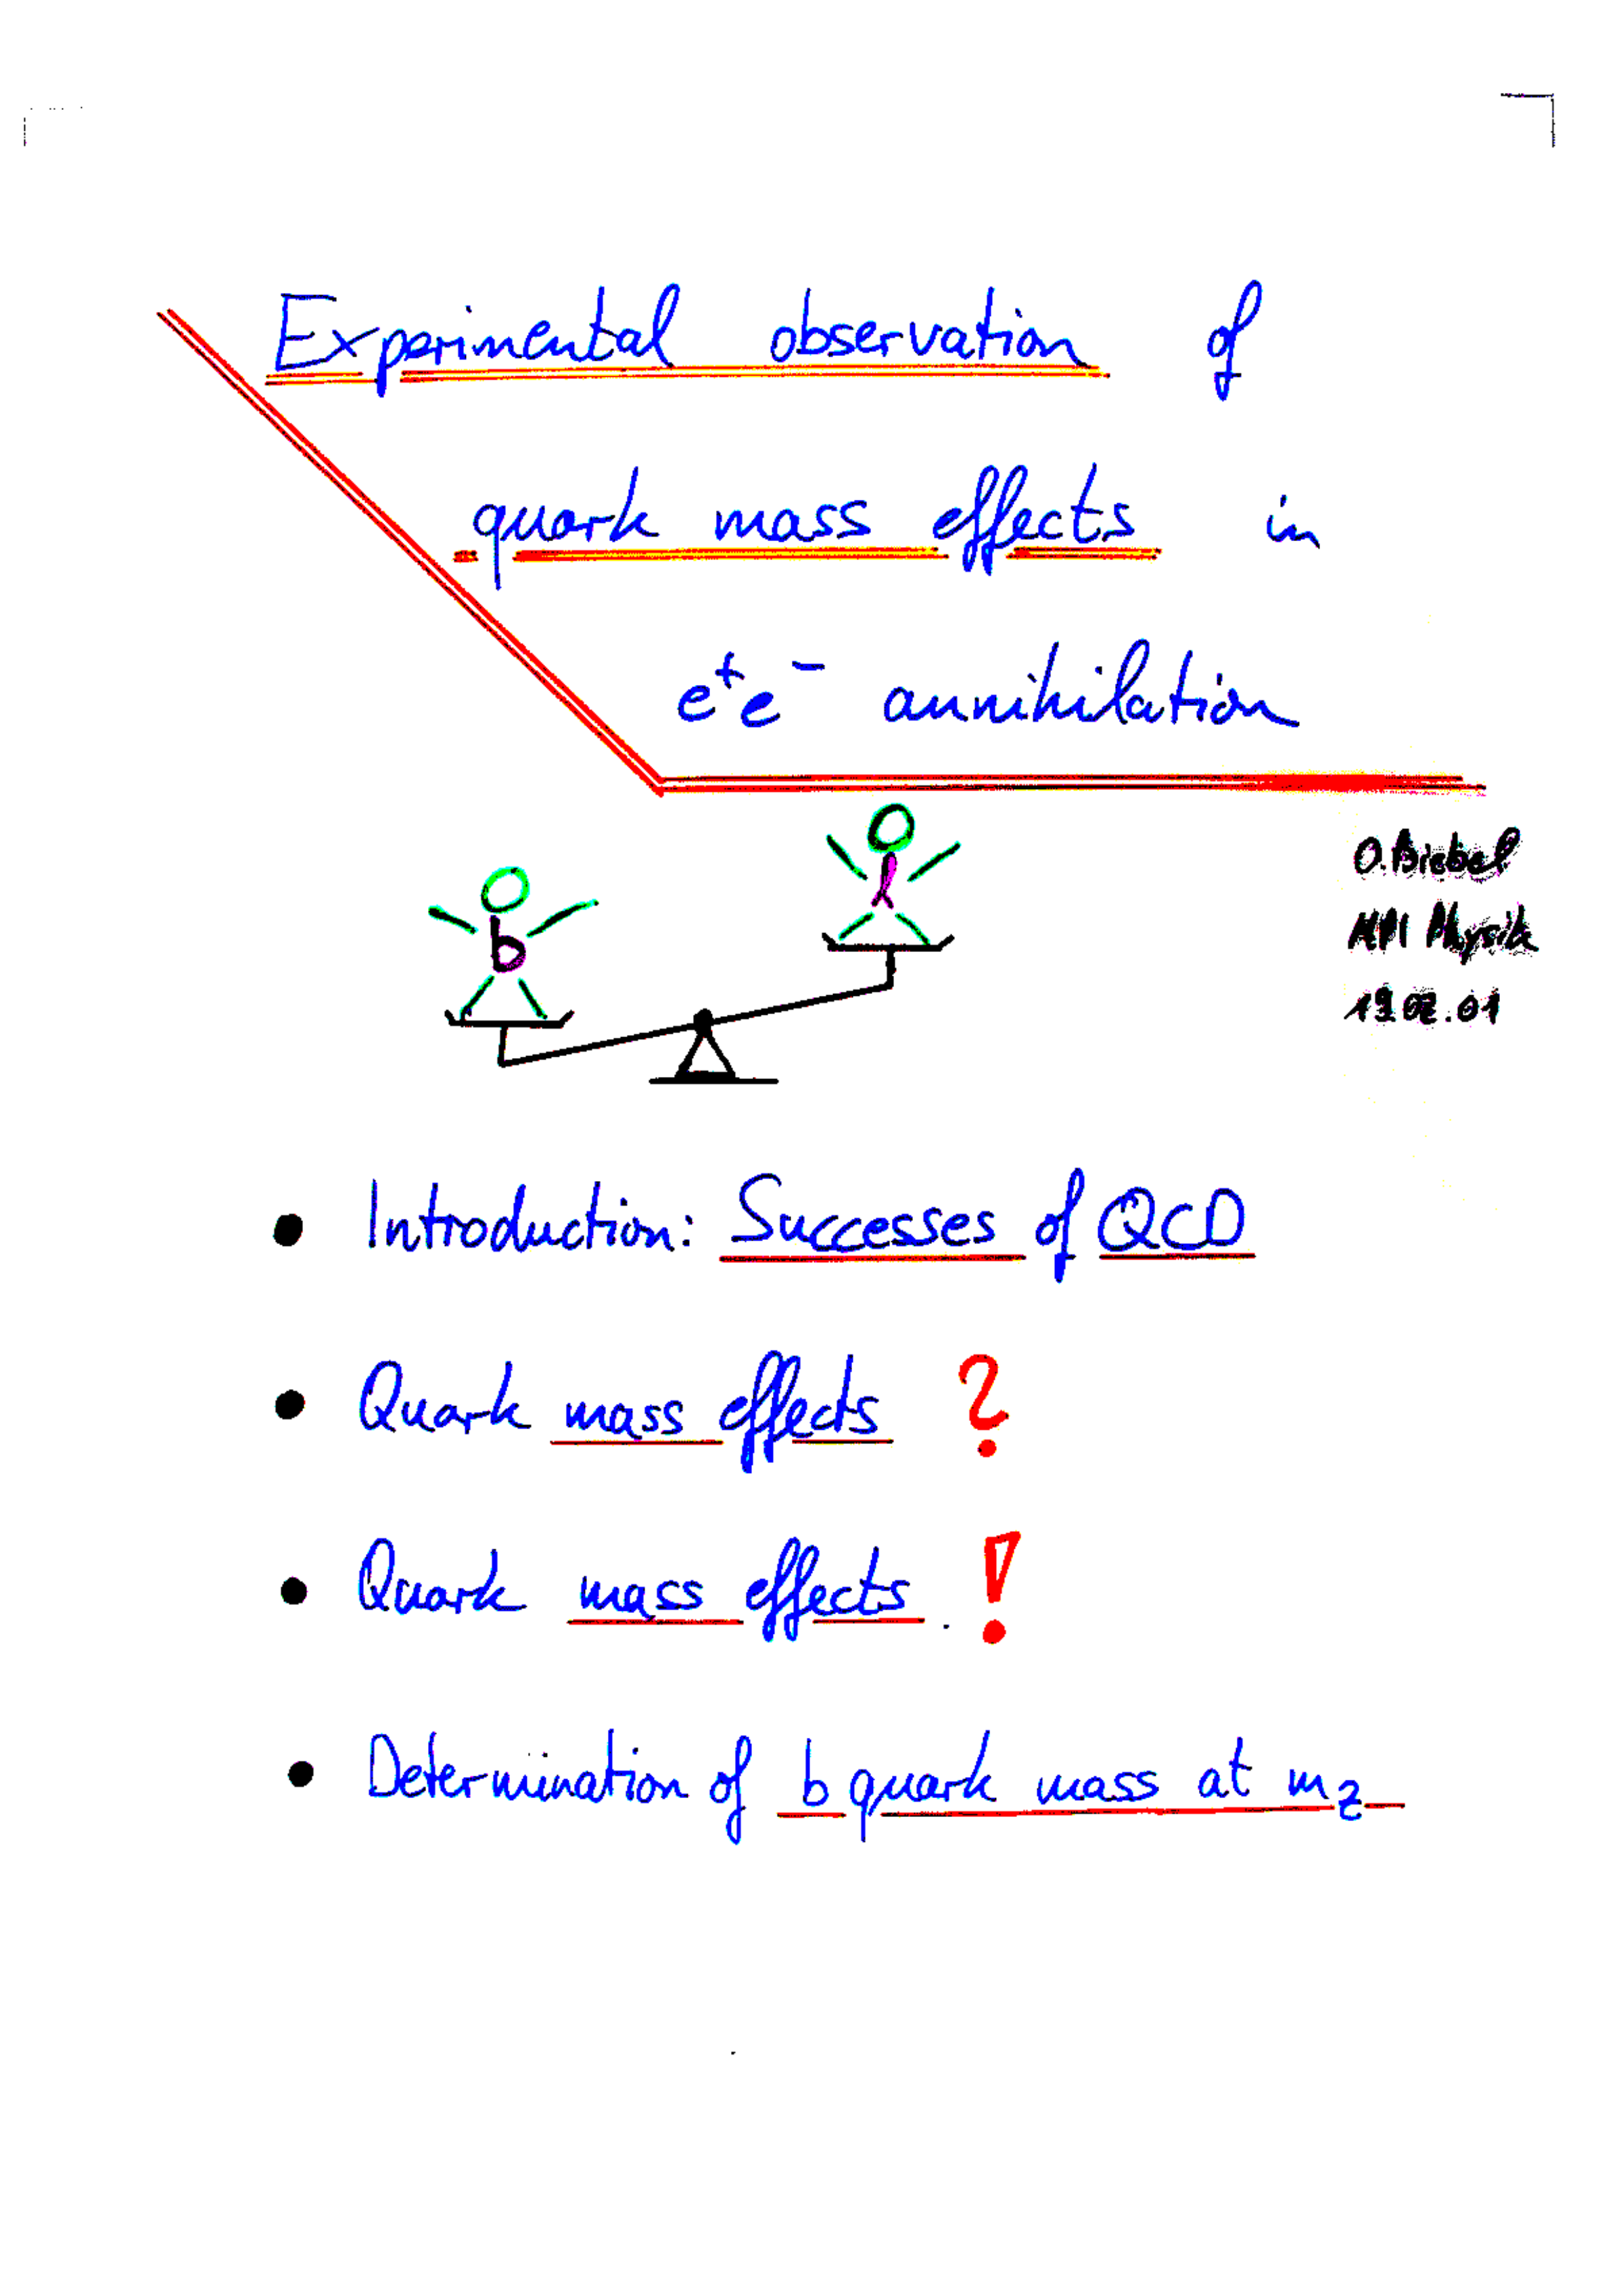 Experimental observation of
quark mass effects in
e⁺e⁻ annihilation
O. Biebel
MPI Physik
19.02.01
b
l
• Introduction: Successes of QCD
• Quark mass effects ?
• Quark mass effects !
• Determination of b quark mass at m_Z